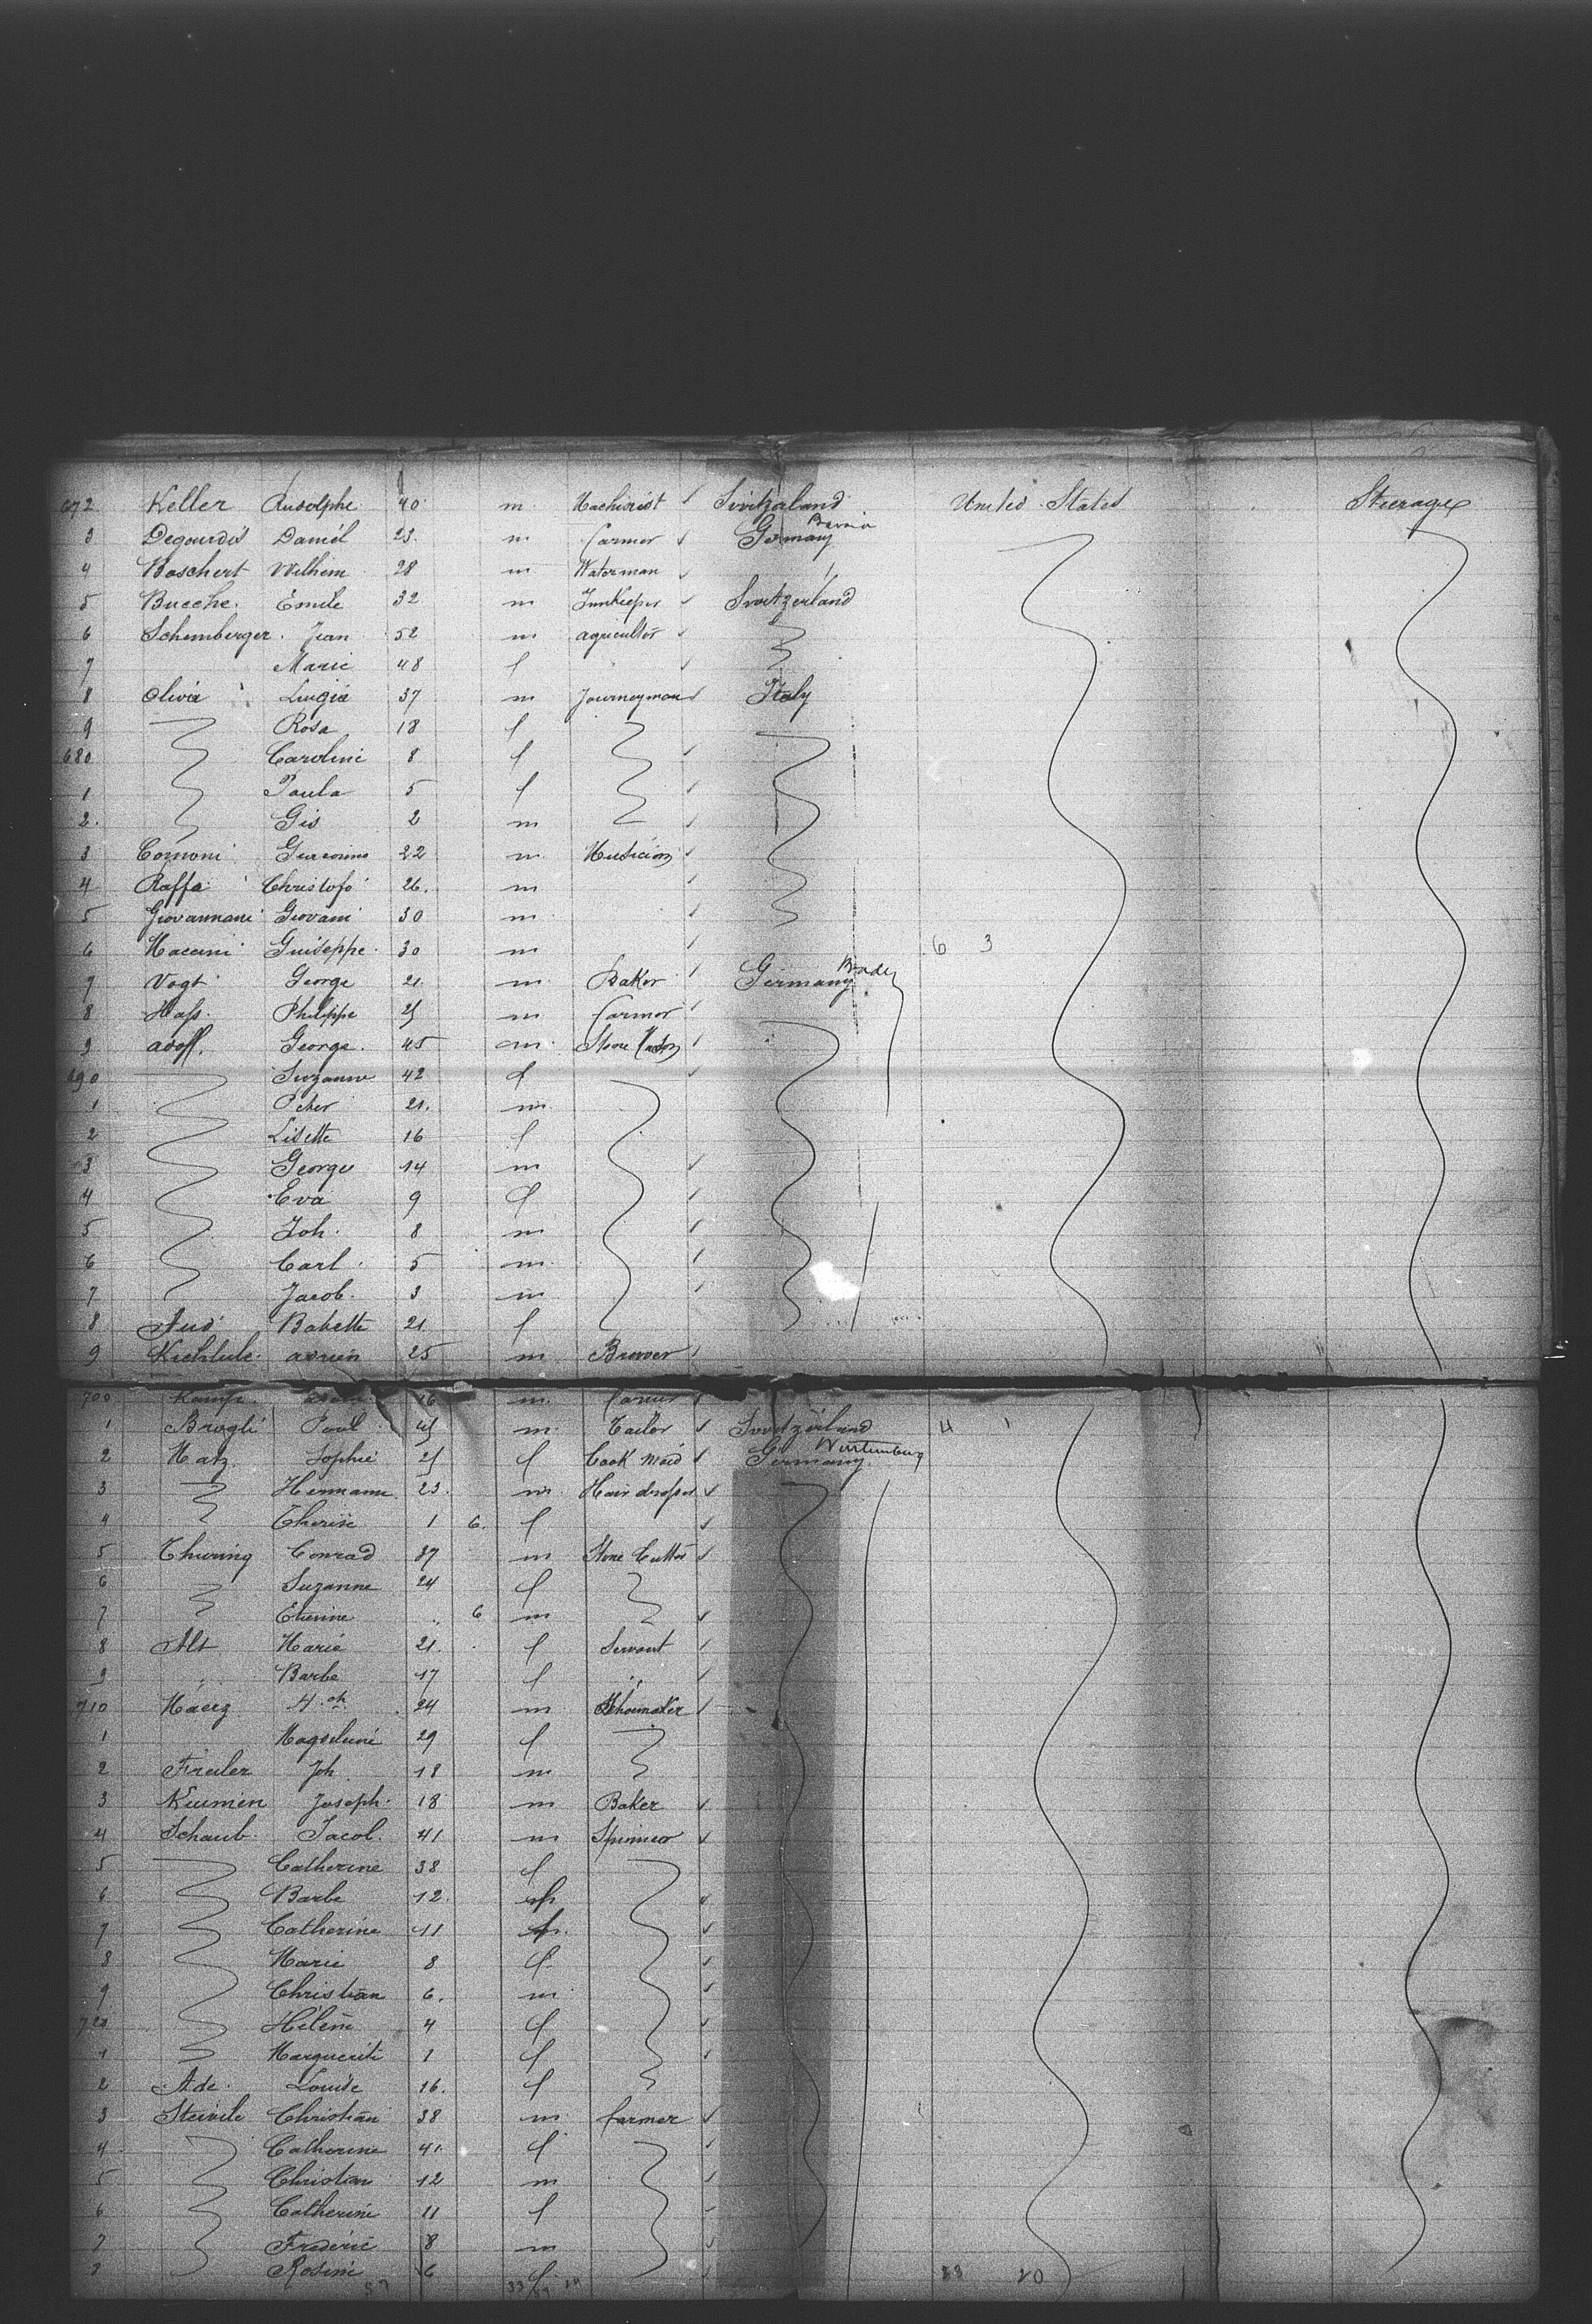 672 Keller Rudolphe 40 m. Machinist ✓ Switzaland United States Steerage
3 Degourdis Daniél 23. m farmer ✓ Germany Bavaria
4 Boschert Wilhem 28 m Waterman ✓
5 Bueche. Émile 32 m InnKeeper ✓ Switzerland
6 Schemberger. Jean 52 m agricultor ✓
7 Marie 48 f ✓
8 Olivia Luigia 37 m Journeyman ✓ Italy
9 Rosa 18 f
680 Caroline 8 f ✓
1 Paula 5 f ✓
2. Gis 2 m ✓
3 Comoni 22 m. Musicion ✓
4 Raffa Christofo 26. m ✓
5 Giovannani Giovani 30 m ✓
6 Maccini Guiseppe. 30 m ✓ 6 3
7 Vogt George 21. m. Baker ✓ Germany Baden
8 Hass. Philippe 25 m farmor ✓
9 adoff. George. 45 m. Stone Mason ✓
690 Suzanne 42 f ✓
1 Peter 21. m.
2 Lisette 16 f
3 George 14 m ✓
4 Eva 9 f ✓
5 Joh. 8 m ✓
6 Carl. 5 m. ✓
7 Jacob. 3 m ✓
8 Babette 21 f
9 25 m Brewer ✓
700 Kampf. 16 m. farmer ✓
1 Brogli Paul 45 m. Tailor ✓ Switzerland 4 1
2 Matz. Sophie 25 f Cook maid ✓ Germany. Wurtemburg
3 Hermann 23. m. Hair dresser ✓
4 Therise 1 6. f ✓
5 Thuring Conrad 37 m Stone Cutter ✓
6 Suzanne 24 f
7 Etienne 6 m ✓
8 Alt Marie 21. f Servant ✓
9 Barbe 17 f ✓
710 24 m Shoemaker ✓
1 Magdeleine 29 f
2 Joh. 18 m
3 Joseph. 18 m Baker ✓
4 Schaub. Jacob. 41 m Spinner ✓
5 Catherine 38 f
6 Barbe 12. f ✓
7 Catherine 11 f. ✓
8 Marie 8 f. ✓
9 Christian 6. m. ✓
720 Hélène 4 f ✓
1 Marguerite 1 f ✓
2 Ade. Louise 16. f
3 Christian 38 m. farmer ✓
4 Catherine 41. f ✓
5 Christian 12 m ✓
6 Catherine 11 f ✓
7 Frederic 8 m ✓
8 Rosine 6 f. ✓ 20